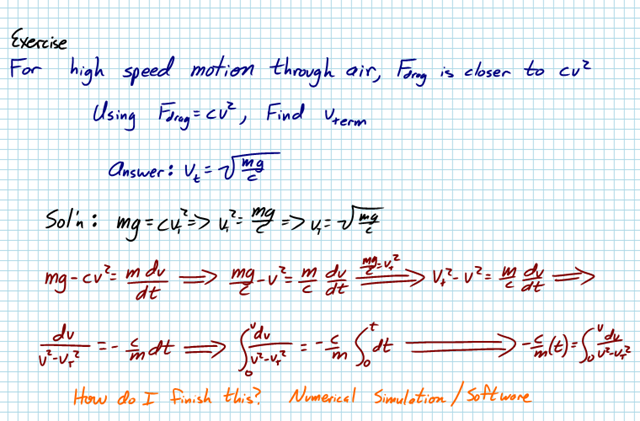 Exercise
For high speed motion through air, F_drag is closer to cv²
Using F_drag = cv², Find v_term
Answer: v_t = √(mg/c)
Sol'n: mg = cv_t² => v_t² = mg/c => v_t = √(mg/c)
mg - cv² = m dv/dt ⟹ mg/c - v² = m/c dv/dt ⟹ (mg/c = v_t²) v_t² - v² = m/c dv/dt ⟹
dv/(v² - v_t²) = -c/m dt ⟹ ∫₀^v dv/(v² - v_t²) = -c/m ∫₀^t dt ⟹ -c/m (t) = ∫₀^v dv/(v² - v_t²)
How do I finish this? Numerical Simulation / Software